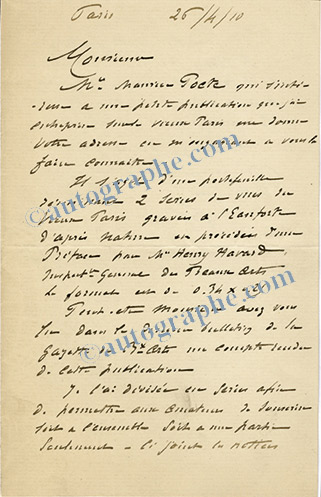 Paris 26/4/10
Monsieur
Mr Maurice qui s'inté-
resse à une petite publication que j'ai
entreprise sur le vieux Paris me donne
votre adresse en m'engageant à vous la
faire connaitre
Il s'agit d'un portefeuille
2 series de vues du
Vieux Paris gravées à l'Eauforte
d'après nature et précédées d'une
Préface par Mr Henry Havard
Inspectr General des Beaux Arts
le format est de 0.34 x
Peut-etre Monsieur avez vous
lu dans le dernier bulletin de la
Gazette des Bx Arts un compte rendu
de cette publication
Je l'ai divisée en series afin
de permettre aux amateurs de souscrire
soit à l'ensemble soit à une partie
seulement - Ci joint la notice
©autographe.com
©autographe.com
©autographe.com